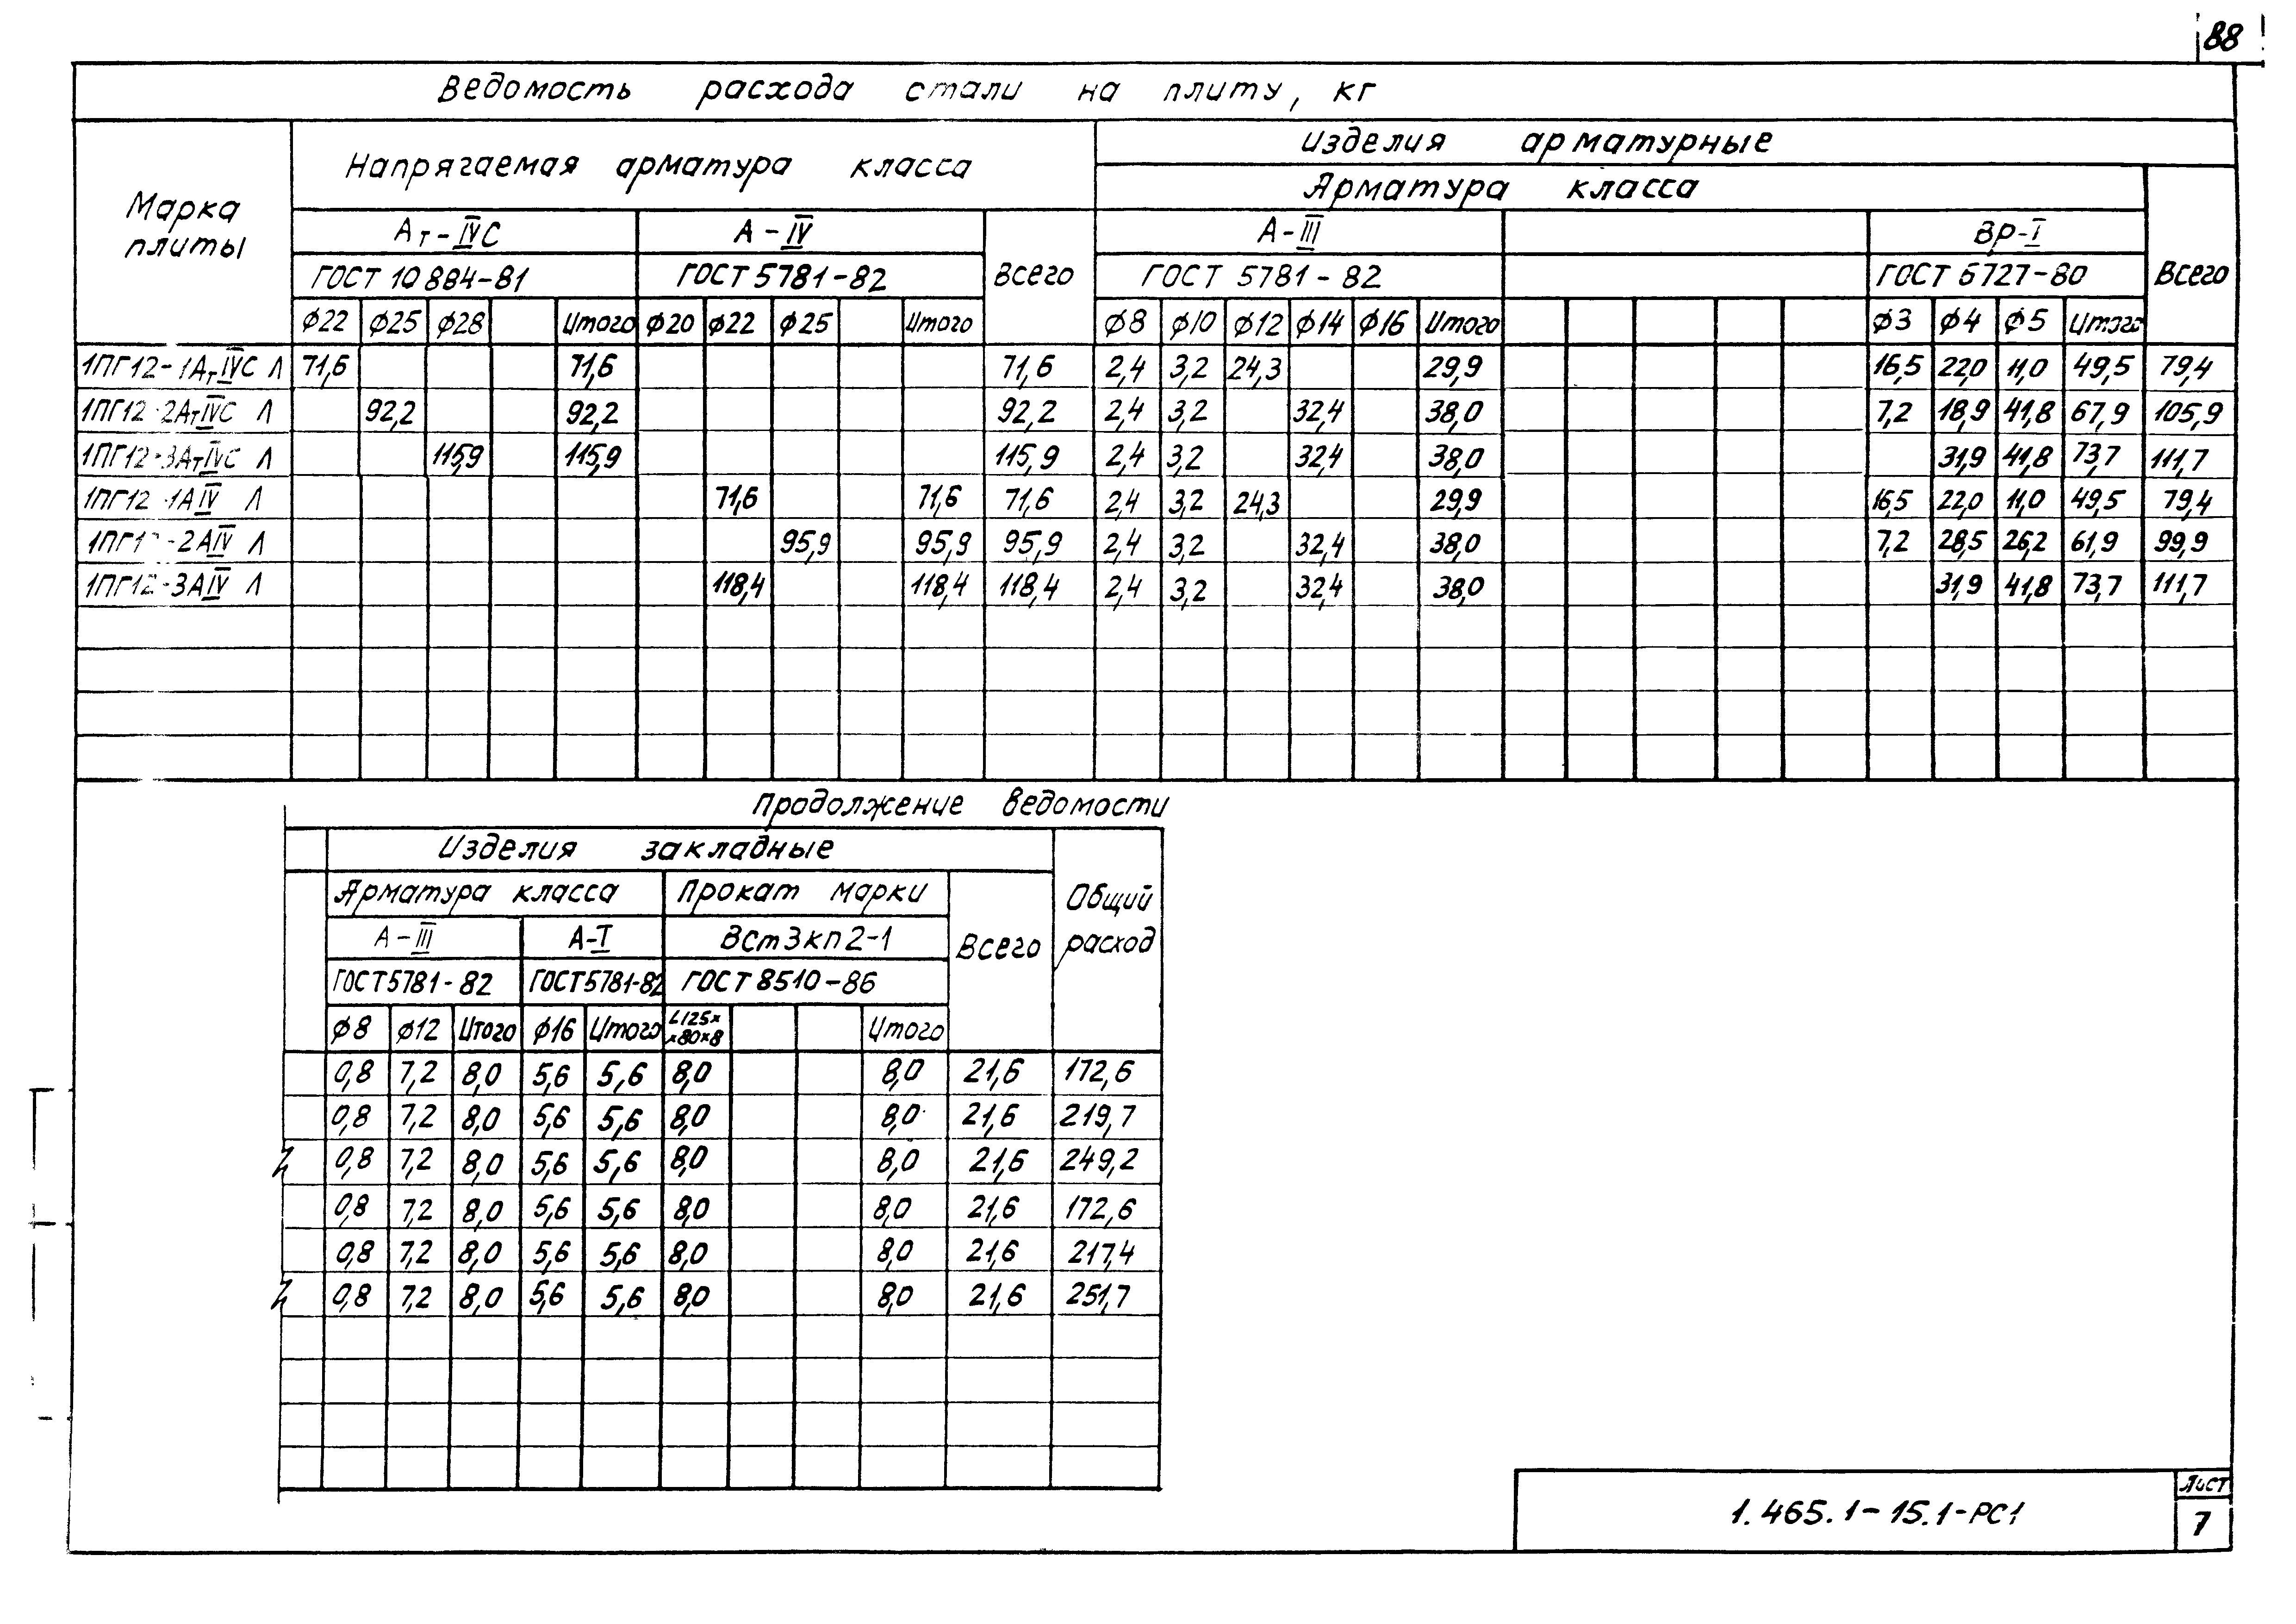 88
Ведомость расхода стали на плиту, кг
Марка плиты
Напрягаемая арматура класса
Изделия арматурные
Арматура класса
Ат-IVС А-IV Всего А-III Вр-I Всего
ГОСТ 10884-81 ГОСТ 5781-82 ГОСТ 5781-82 ГОСТ 6727-80
ф22 ф25 ф28 Итого ф20 ф22 ф25 Итого ф8 ф10 ф12 ф14 ф16 Итого ф3 ф4 ф5 Итого
1ПГ12-1АтIVС Л 71,6 71,6 71,6 2,4 3,2 24,3 29,9 16,5 22,0 11,0 49,5 79,4
1ПГ12-2АтIVС Л 92,2 92,2 92,2 2,4 3,2 32,4 38,0 7,2 18,9 41,8 67,9 105,9
1ПГ12-3АтIVС Л 115,9 115,9 115,9 2,4 3,2 32,4 38,0 31,9 41,8 73,7 111,7
1ПГ12-1АIV Л 71,6 71,6 71,6 2,4 3,2 24,3 29,9 16,5 22,0 11,0 49,5 79,4
1ПГ12-2АIV Л 95,9 95,9 95,9 2,4 3,2 32,4 38,0 7,2 28,5 26,2 61,9 99,9
1ПГ12-3АIV Л 118,4 118,4 118,4 2,4 3,2 32,4 38,0 31,9 41,8 73,7 111,7
Продолжение ведомости
Изделия закладные
Арматура класса Прокат марки Всего Общий расход
А-III А-I ВСт3кп2-1
ГОСТ 5781-82 ГОСТ 5781-82 ГОСТ 8510-86
ф8 ф12 Итого ф16 Итого L125х х80х8 Итого
0,8 7,2 8,0 5,6 5,6 8,0 8,0 21,6 172,6
0,8 7,2 8,0 5,6 5,6 8,0 8,0 21,6 219,7
0,8 7,2 8,0 5,6 5,6 8,0 8,0 21,6 249,2
0,8 7,2 8,0 5,6 5,6 8,0 8,0 21,6 172,6
0,8 7,2 8,0 5,6 5,6 8,0 8,0 21,6 217,4
0,8 7,2 8,0 5,6 5,6 8,0 8,0 21,6 251,7
1.465.1-15.1-РС1
Лист
7